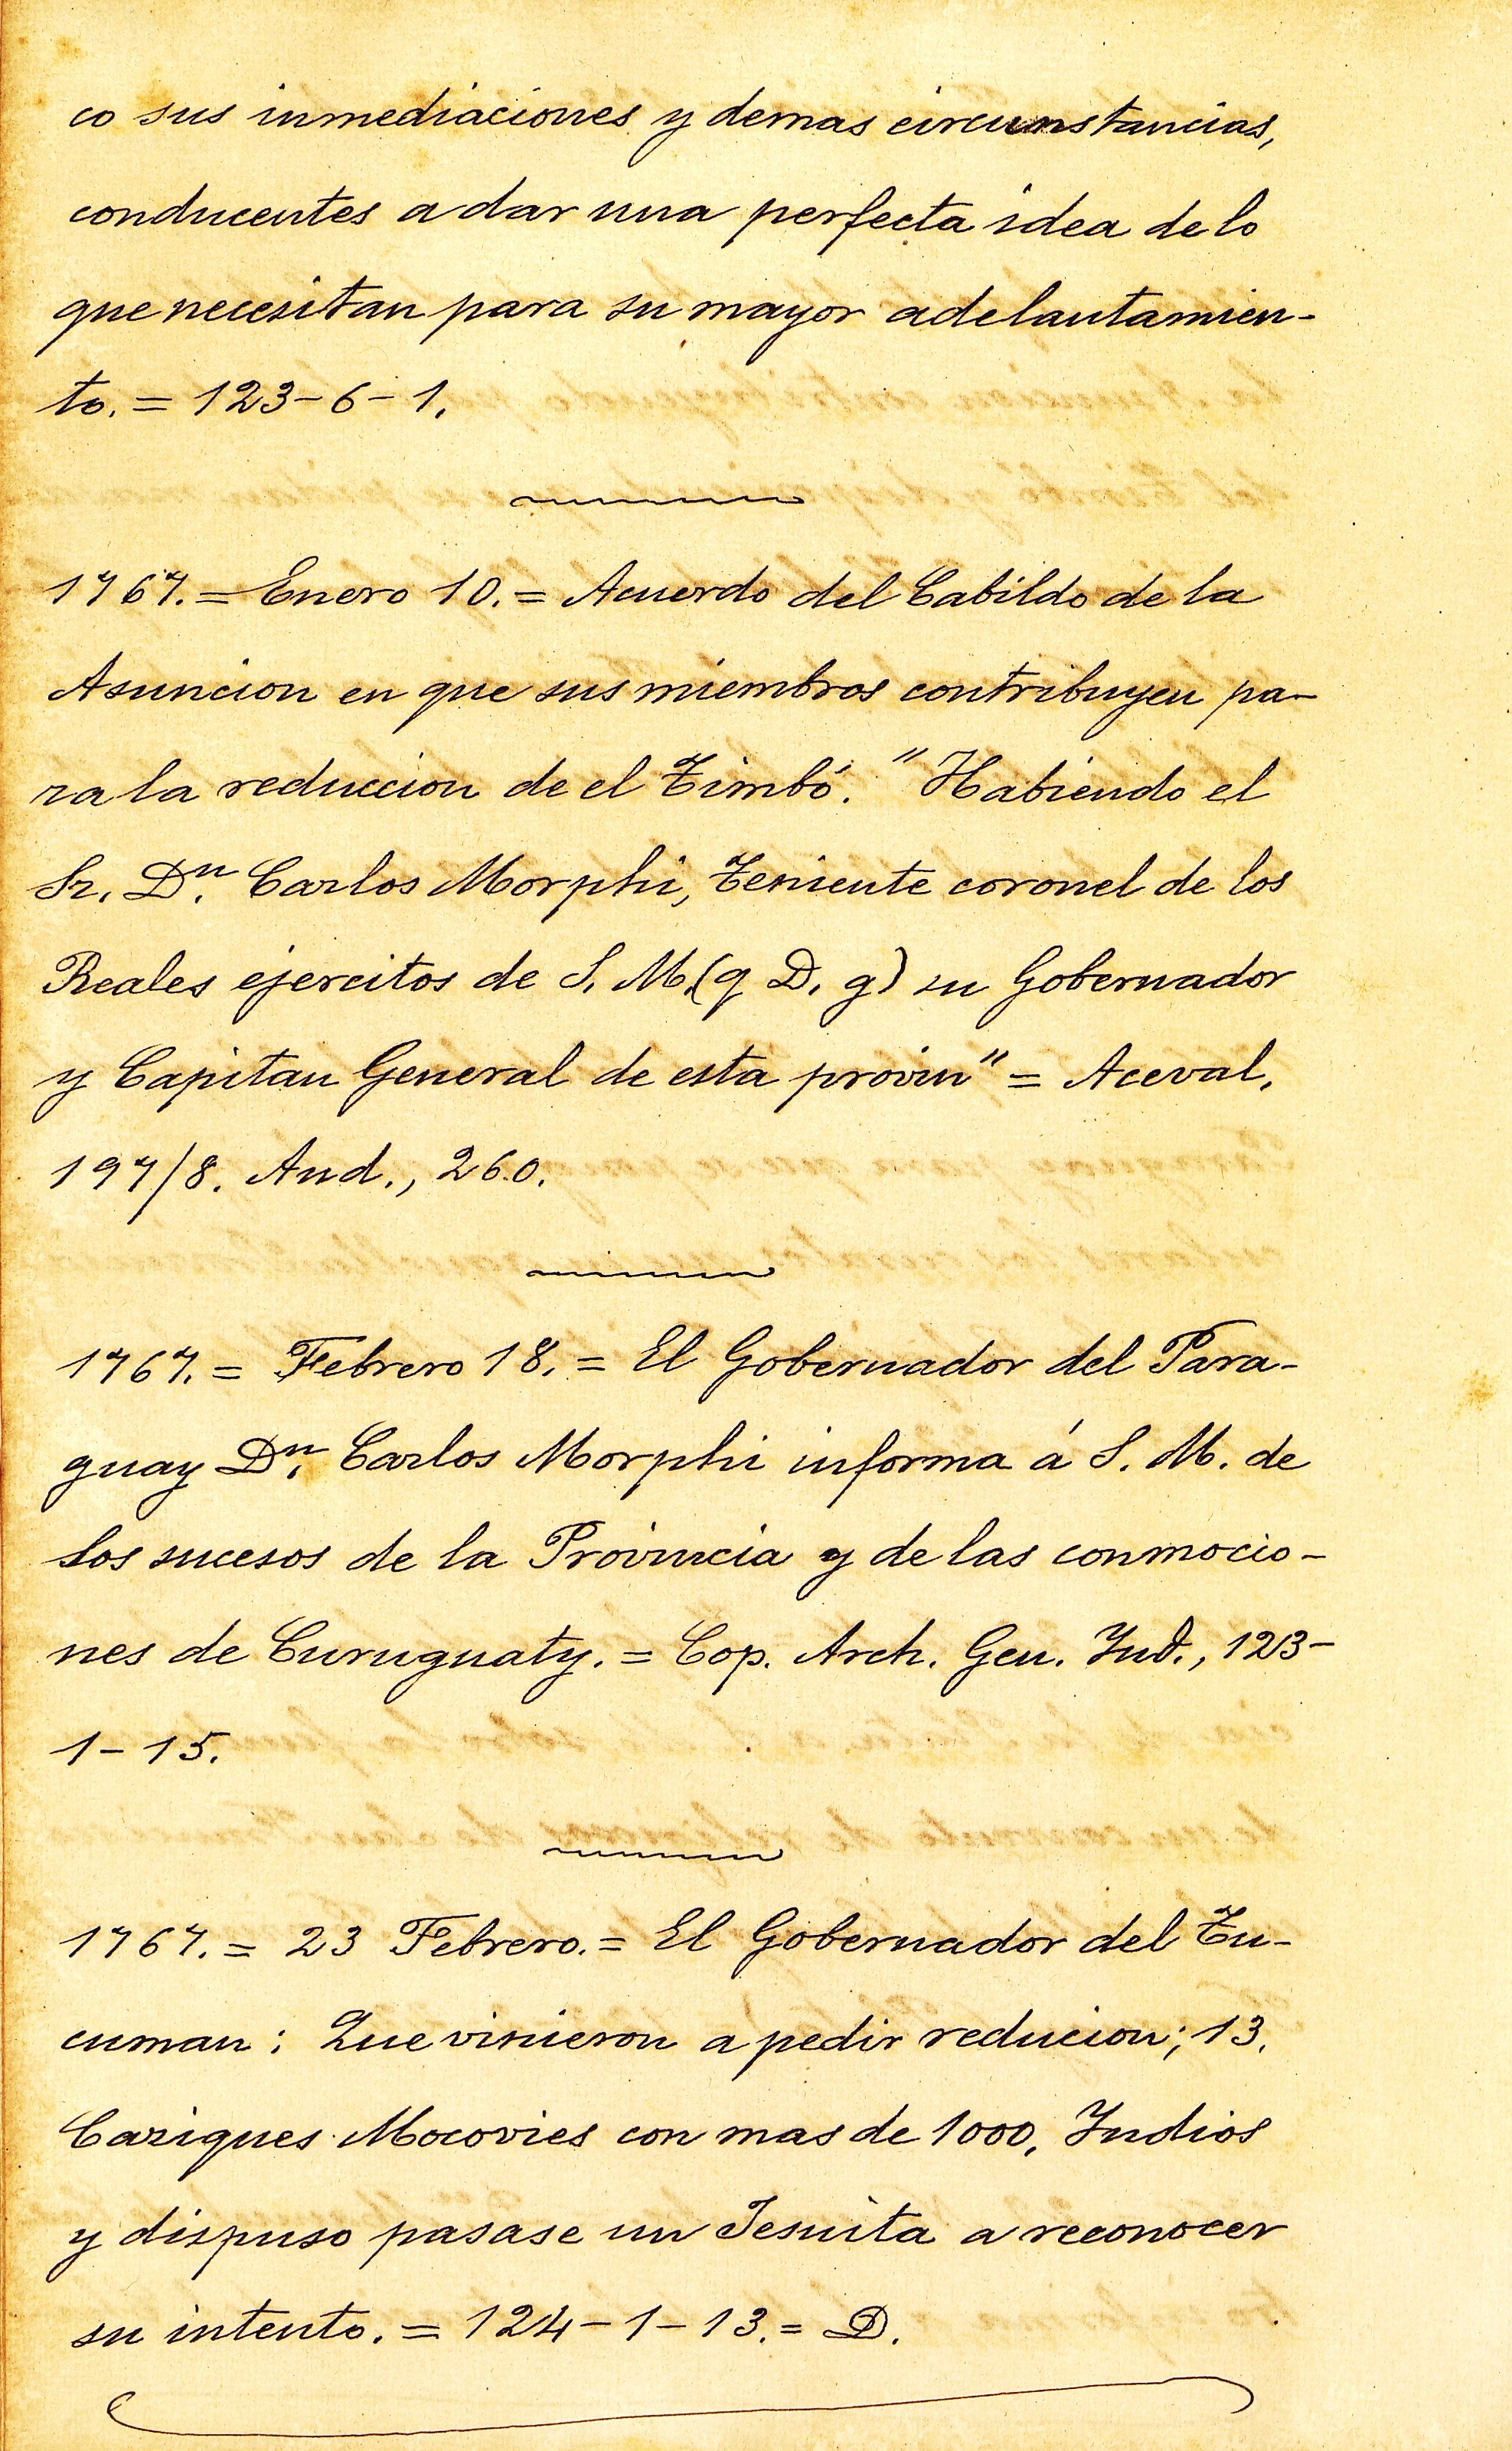 co sus inmediaciones y demas circunstancias,
conducentes a dar una perfecta idea de lo
que necesitan para su mayor adelantamien-
to. = 123-6-1.
1767. = Enero 10. = Acuerdo del Cabildo de la
Asuncion en que sus miembros contribuyen pa-
ra la reduccion de el Timbó. "Habiendo el
Sr. Dn. Carlos Morphi, Teniente coronel de los
Reales ejercitos de S. M. (q D. g) su Gobernador
y Capitan General de esta provin" = Aceval,
197/8. And., 260.
1767. = Febrero 18. = El Gobernador del Para-
guay Dn. Carlos Morphi informa á S. M. de
los sucesos de la Provincia y de las conmocio-
nes de Curuguaty. = Cop. Arch. Gen. Ind., 123-
1-15.
1767. = 23 Febrero. = El Gobernador del Tu-
cuman: Que vinieron a pedir reducion; 13.
Caziques Mocovies con mas de 1000, Indios
y dispuso pasase un Jesuita a reconocer
su intento. = 124-1-13. = D.